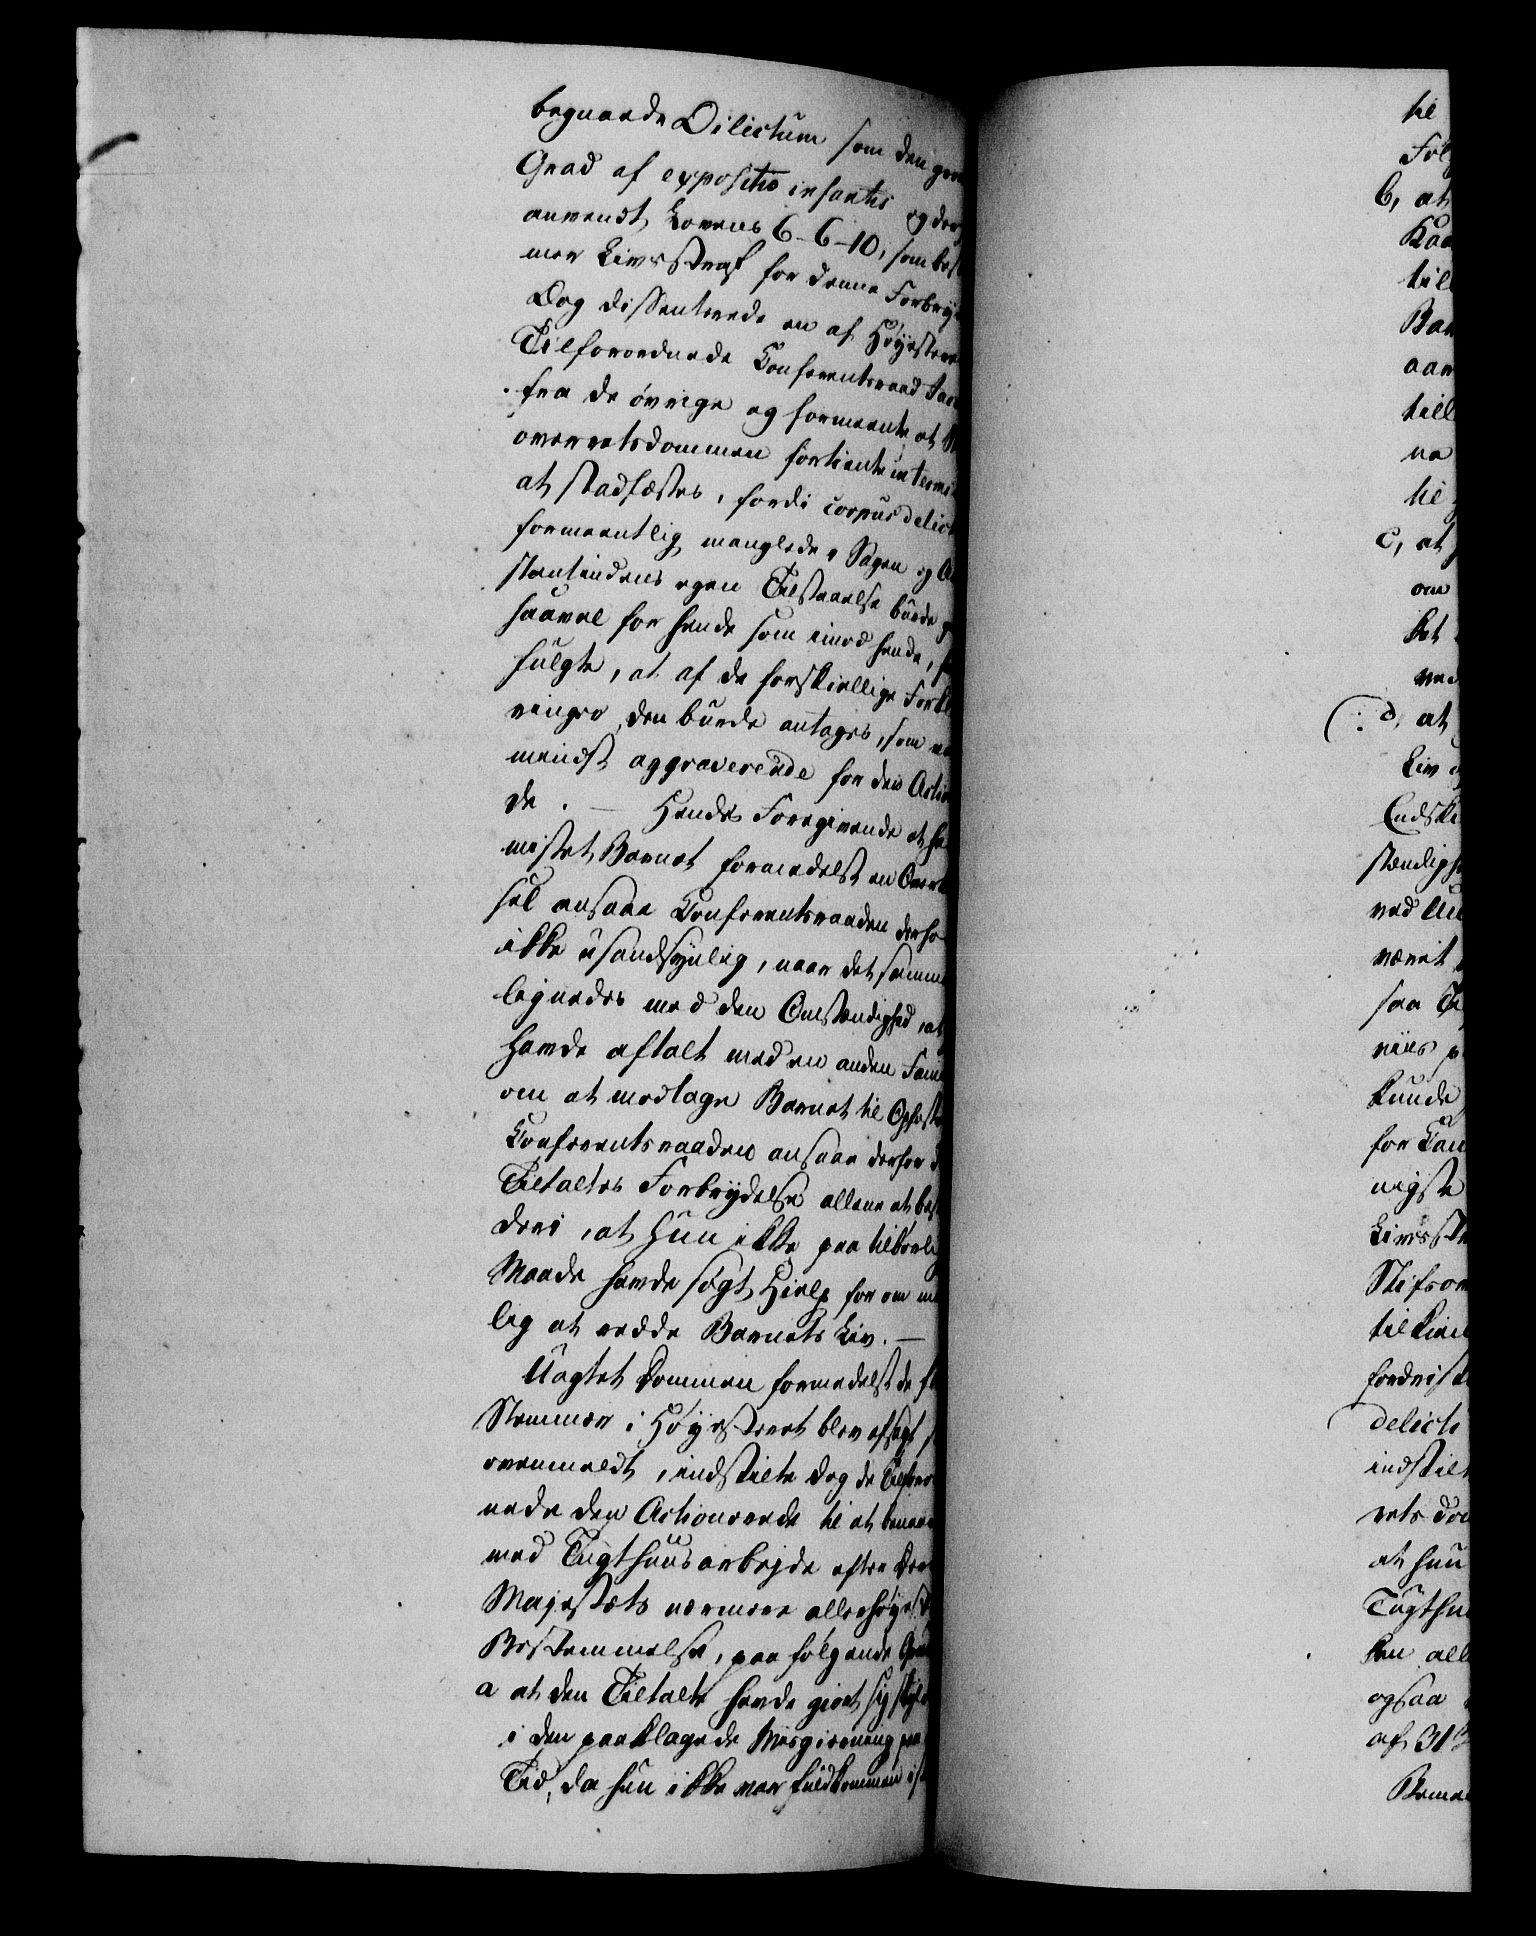 begaaede Delictum som den gro
Grad af expositio infantis og der
anvendt Lovens 6-6-10, som best
mer Livsstraf for denne Forbry
Dog dissenterede en af Høyesteret
Tilforordnede Conferentsraad
fra de øvrige og formeente at
overretsdommen fortiente in termi
at stadfæstes, fordi corpus delict
formeentlig manglede i Sagen og
stantindens egen Tilstaaelse burde
saavel for hende som imod hende,
fulgte, at af de forskiellige Forkl
ringer den burde antages, som var
mindst aggraverende for den Actio
de. — Hendes Foregivende at ha
mistet Barnet formedelst en
sel ansaae Conferentsraaden derfo
ikke usandsynlig, naar det samme
lignedes med den Omstændighed, at
havde aftalt med en anden Fami
om at modtage Barnet til Opfost
Conferentsraaden ansaae derfor d
Tiltaltes Forbrydelse allene at bes
deri, at hun ikke paa tilbørli
Maade havde søgt Hielp for om mu
lig at redde Barnets Liv. —
Uagtet Dommen formedelst de fl
Stemmer i Høyesteret blev afsagt
ovenmeldt, indstilte dog de Tilforor
nede den Actionerede til at benaad
med Tugthuusarbejde efter Der
Majestæts nærmere allerhøyest
Bestemmelse, paa følgende
a at den Tiltalte havde giort sig skyld
i den paaklagede Misgierning paa
Tid, da hun ikke var fuldkommen
til
Føl
b, at
til
Bar
aar
till
na
til
c, at
om
ket
ved
d, at
Liv
Endski
stændigh
ved
været
saa
viis
kunde
for
nigste
Livsst
Stifsov
til
delicti
indstilt
rets dom
at hun
Tugthu
ken all
ogsaa
af 31